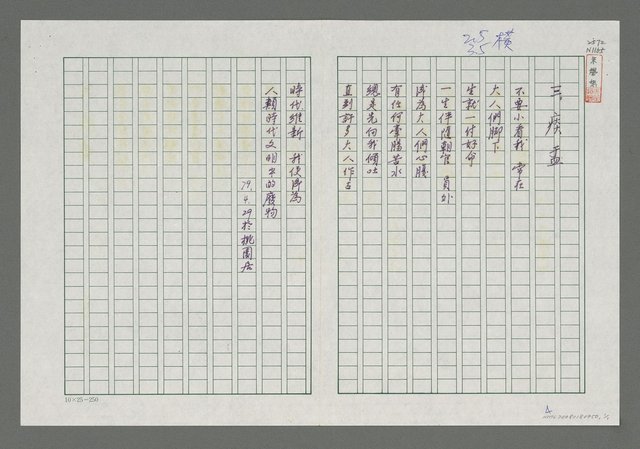 25 橫
35
三、痰盂
不要小看我 常在
大人們腳下
生就一付好命
一生伴隨朝官 員外
成為大人們心腹
有任何牽腸苦水
總是先向我傾吐
直到許多大人作古
時代維新 我便淪為
人類時代文明中的廢物
79.4.29於桃園居
10×25=250